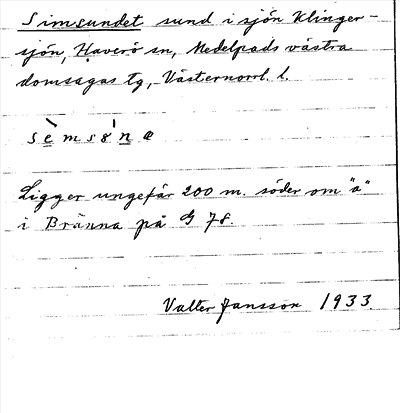 Simsundet sund i sjön Klinger-
sjön, Haverö sn, Medelpads västra
domsagas tg, Västernorrl. l.
sèmsónə
Ligger ungefär 200 m. söder om "a"
i Bränna på G 78.
Valter Jansson 1933.